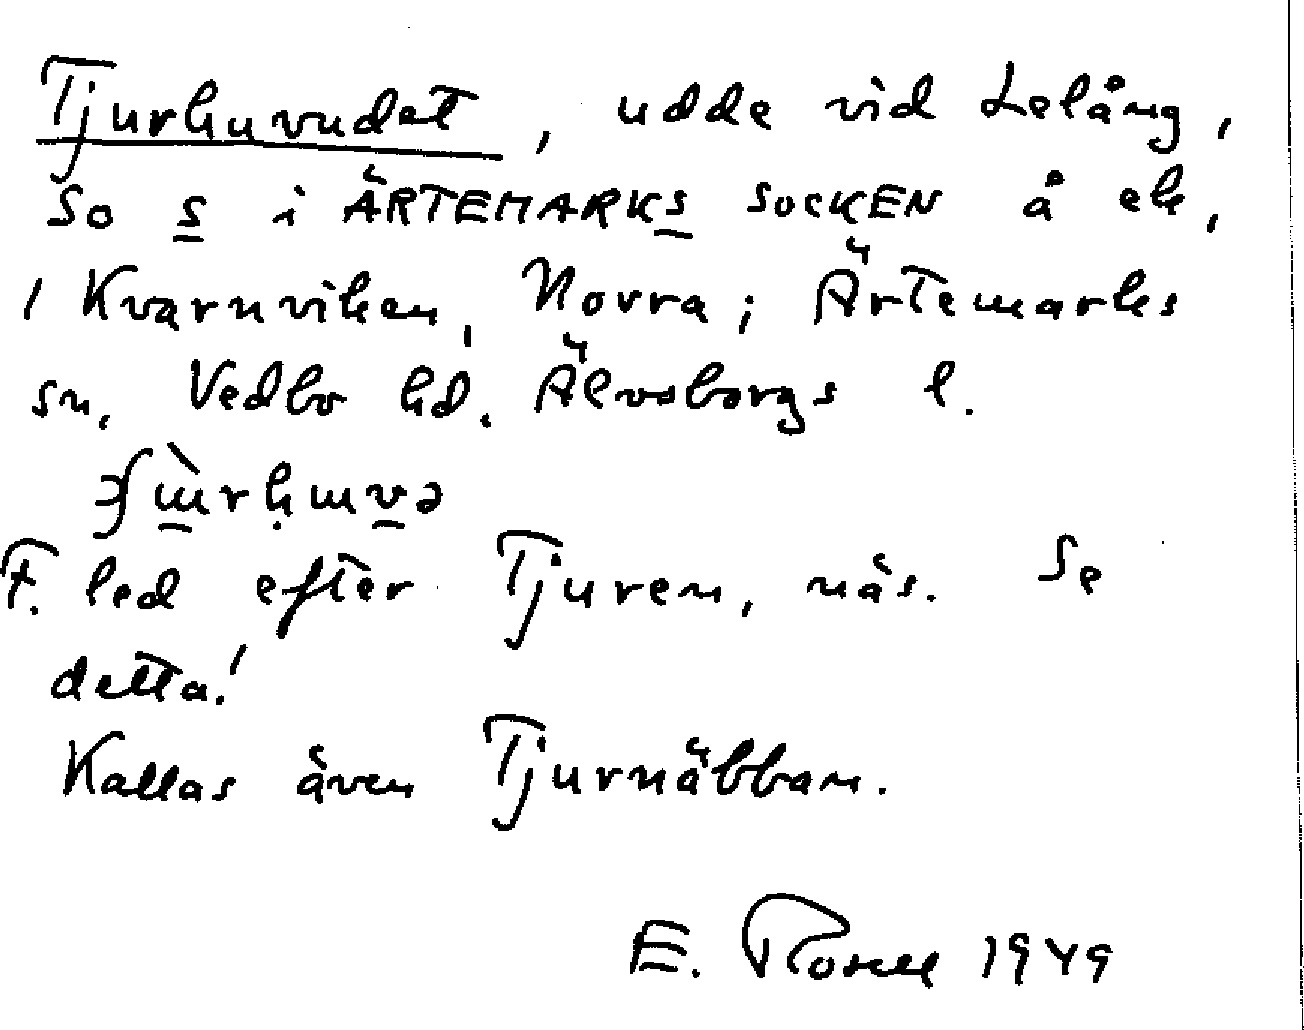 Tjurhuvudet, udde vid Lelång,
So s i ÄRTEMARKS SOCKEN å ek,
/ Kvarnviken, Norra; Ärtemarks
sn, Vedbo hd. Älvsborgs l.
F. led efter Tjuren, näs. Se
detta!
Kallas även Tjurnäbban.
E. Rosell 1949